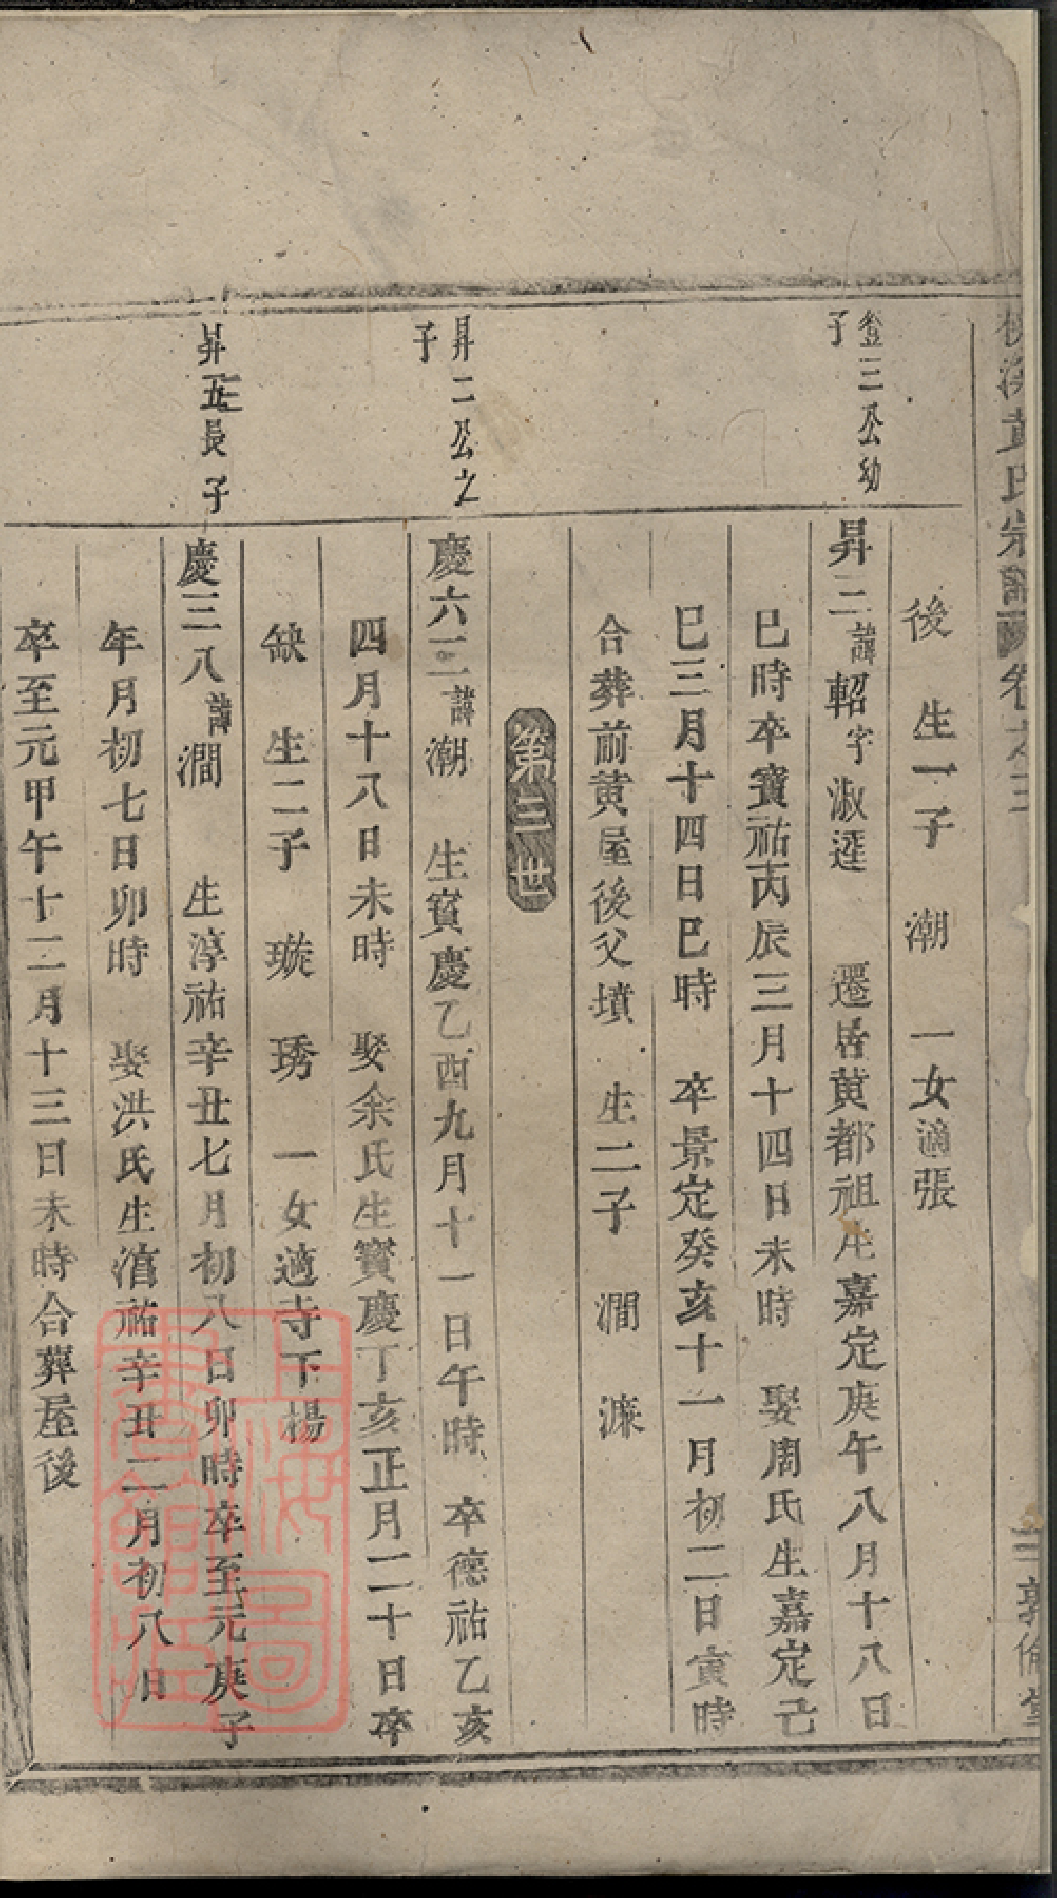 黃氏宗譜
卷之三
二 敦倫堂
後 生一子 潮 一女適張
登三公幼子
昇三 諱軺字淑遅 遷居黃都祖 生嘉定庚午八月十八日
巳時卒寶祐丙辰三月十四日未時 娶周氏生嘉定己
巳三月十四日巳時 卒景定癸亥十一月初二日寅時
合葬前黃屋後父墳 生二子 澗 濂
第三世
昇二公之子
慶六三 諱潮 生寳慶乙酉九月十一日午時 卒德祐乙亥
四月十八日未時 娶余氏生寳慶丁亥正月二十日卒
缺 生二子 璇 琇 一女適寺下楊
昇三長子
慶三八 諱澗 生淳祐辛丑七月初八日卯時卒至元庚子
年月初七日卯時 娶洪氏生淳祐辛丑二月初八日
卒至元甲午十二月十三日未時合葬屋後
上海圖書館藏